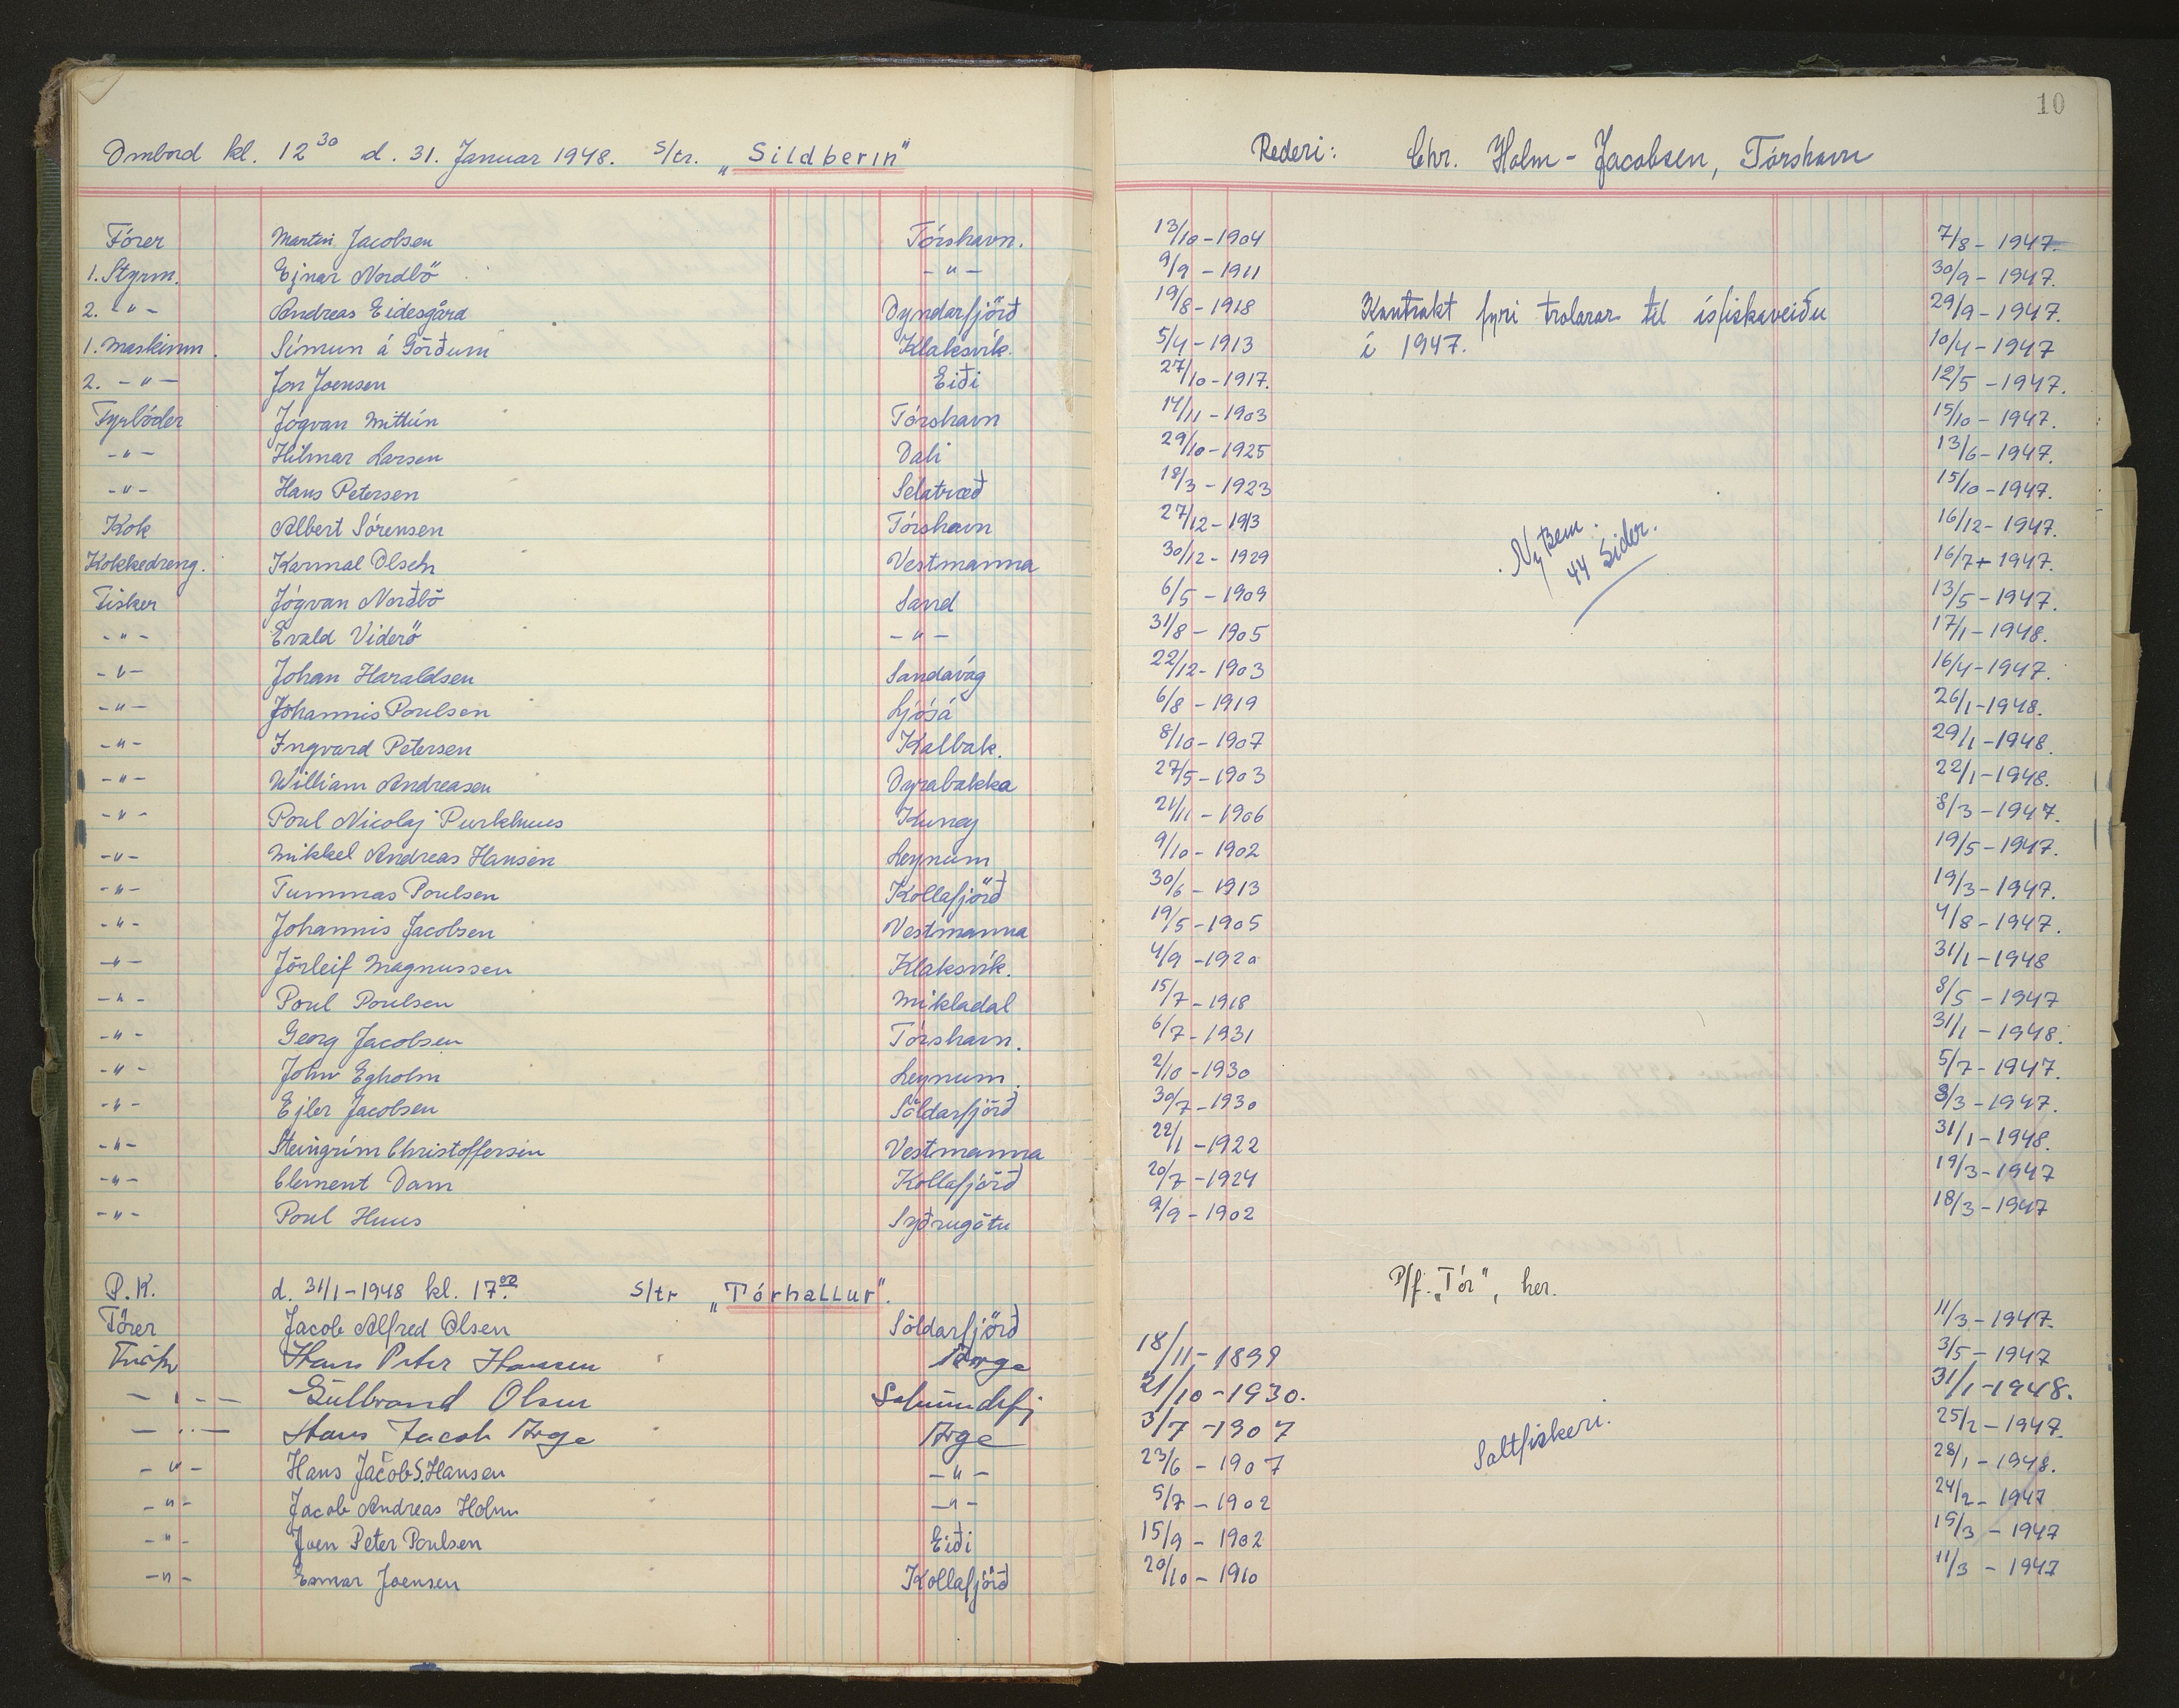 10
Ombord kl. 12³⁰ d. 31. Januar 1948. s/tr. „Sildberin" Rederi: Chr. Holm-Jacobsen, Tórshavn
Förer Martin Jacobsen Tórshavn. 13/10-1904 7/8-1947.
1. Styrm. Ejnar Nordbö -"- 9/9-1911 30/9-1947.
2. -"- Andreas Eidesgård Oyndarfjörð 19/8-1918 Kontrakt fyri trolarar til ísfiskaveiðu 29/9-1947.
1. Maskinm. Símun á Görðum Klaksvík. 5/4-1913 í 1947. 10/4-1947
2. -"- Jon Joensen Eiði 27/10-1917. 12/5-1947.
Fyrböder Jógvan Mittún Tórshavn 14/11-1903 15/10-1947.
-"- Hilmar Larsen Dali 29/10-1925 13/6-1947.
-"- Hans Petersen Selatræð 18/3-1923 15/10-1947.
Kok Albert Sörensen Tórshavn 27/12-1913 16/12-1947.
Kokkedreng. Karmal Olsen Vestmanna 30/12-1929 16/7-1947.
44 Sider.
Fisker Jógvan Norðbö Sand 6/5-1909 13/5-1947.
-"- Evald Viderö -"- 31/8-1905 17/1-1948.
-"- Johan Haraldsen Sandavág 22/12-1903 16/4-1947.
-"- Jóhannis Poulsen Ljósá 6/8-1919 26/1-1948.
-"- Ingvard Petersen Kalbak. 8/10-1907 29/1-1948.
-"- William Andreasen Oyrabakka 27/5-1903 22/1-1948.
-"- Poul Nicolaj Purkhuus Kunoy 21/11-1906 8/3-1947.
-"- Mikkel Andreas Hansen Leynum 9/10-1902 19/5-1947.
-"- Tummas Poulsen Kollafjörð 30/6-1913 19/3-1947.
-"- Johannis Jacobsen Vestmanna 19/5-1905 4/8-1947.
-"- Jörleif Magnussen Klaksvík. 4/9-1920 31/1-1948
-"- Poul Poulsen Mikladal 15/7-1918 8/5-1947
-"- Georg Jacobsen Tórshavn. 6/7-1931 31/1-1948.
-"- John Egholm Leynum. 2/10-1930 5/7-1947.
-"- Ejler Jacobsen Söldarfjörð 30/7-1930 8/3-1947.
-"- Steingrím Christoffersen Vestmanna 22/1-1922 31/1-1948.
-"- Clement Dam Kollafjörð 20/7-1924 19/3-1947
-"- Poul Huus Syðrugötu 9/9-1902 18/3-1947
P.K. d. 31/1-1948 kl. 17⁰⁰. s/tr „Tórhallur". P/f. „Tór", her.
Förer Jacob Alfred Olsen Söldarfjörð 11/3-1947.
Hans Peter Hansen Arge 18/11-1899 3/5-1947
-"- Gulbrand Olsen 21/10-1930. 31/1-1948.
-"- Hans Jacob Arge Arge 3/7-1907 Saltfiskeri. 25/2-1947.
-"- Hans Jacob S. Hansen -"- 23/6-1907 28/1-1948.
-"- Jacob Andreas Holm -"- 5/7-1902 24/2-1947
-"- Joen Peter Poulsen Eiði 15/9-1902 15/3-1947
-"- Esmar Joensen Kollafjörð 20/10-1910 11/3-1947